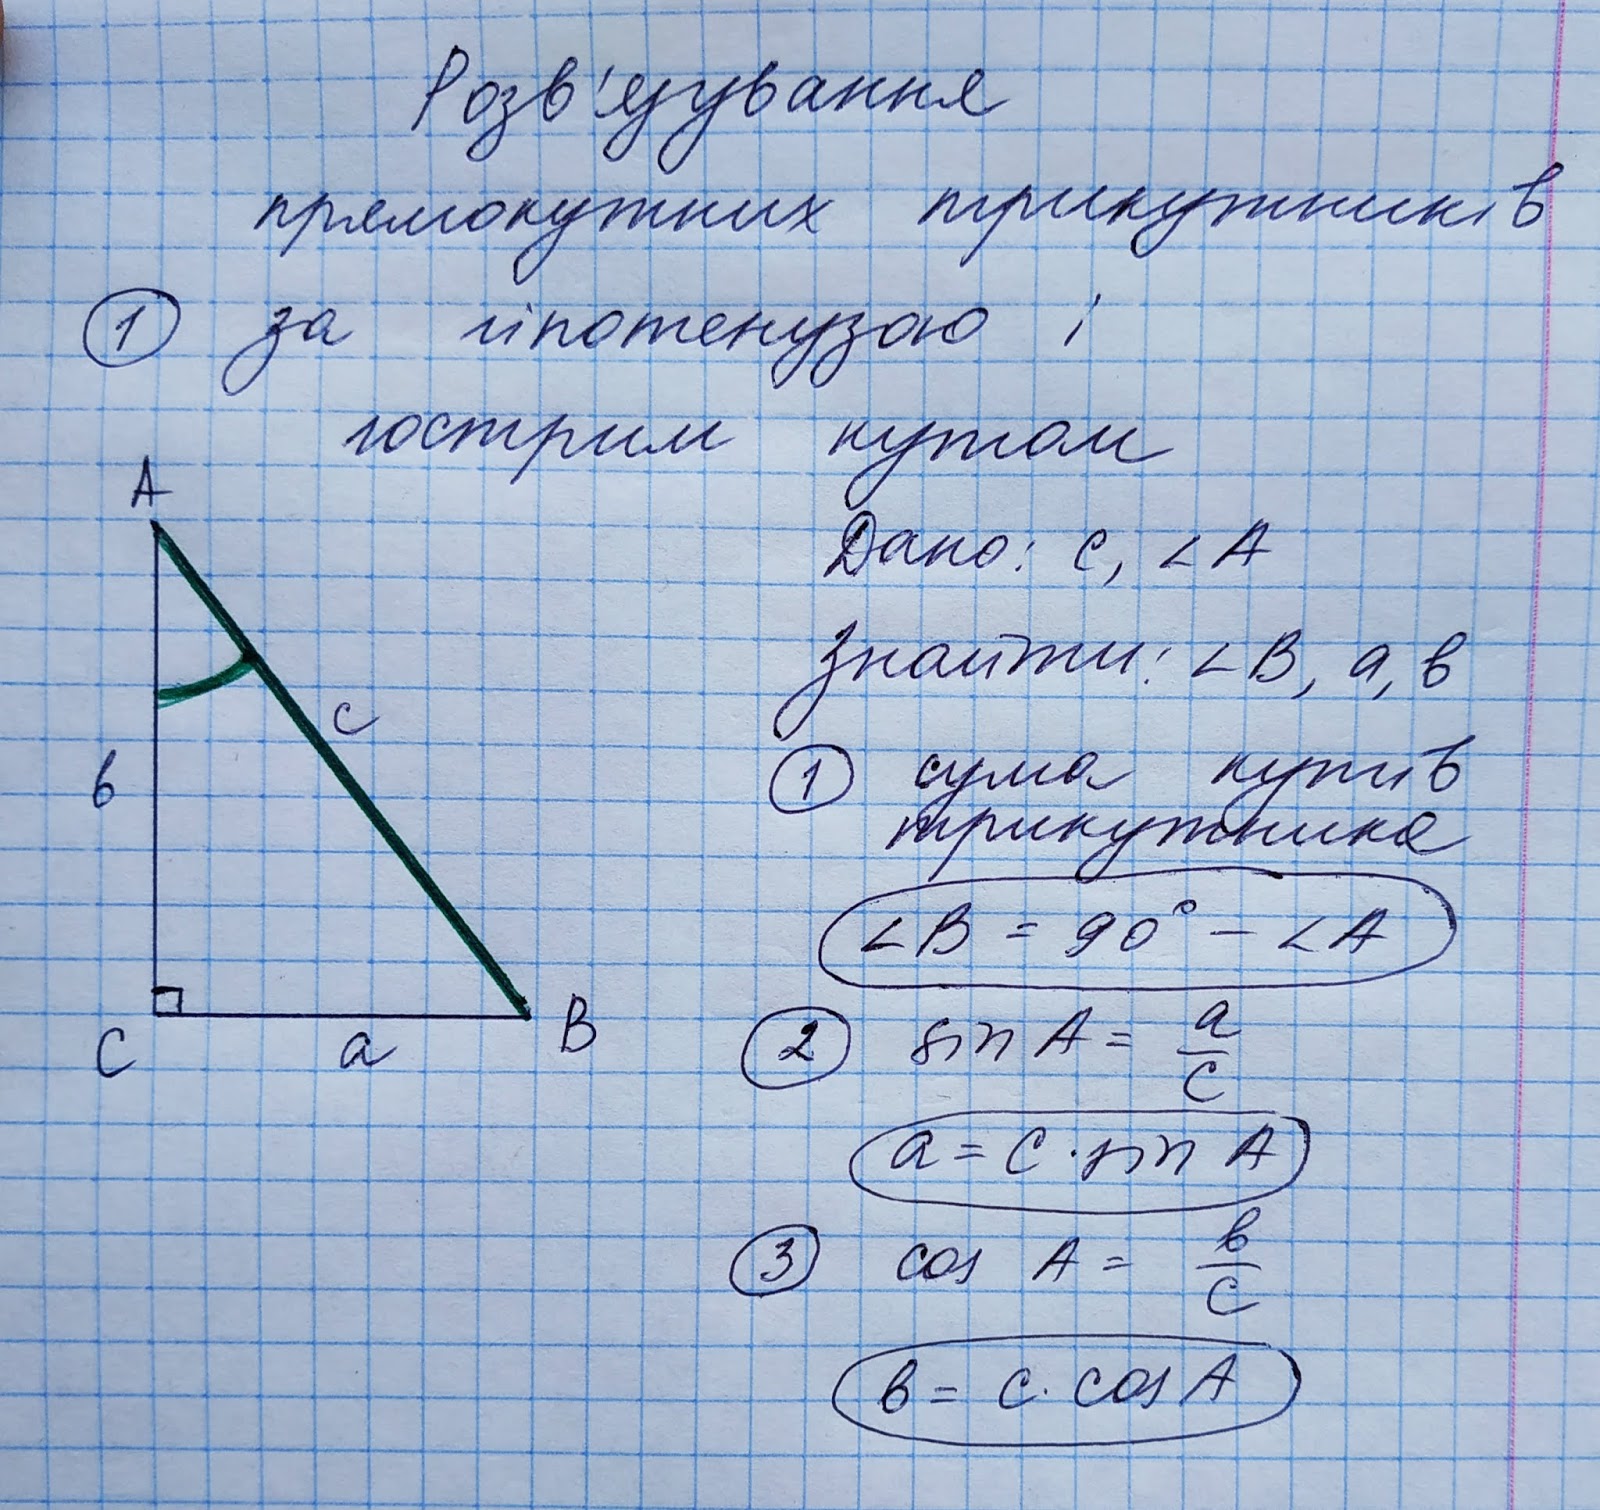 Розв'язування
прямокутних трикутників
① за гіпотенузою і
гострим кутом
A
Дано: c, ∠A
Знайти: ∠B, a, b
c
① сума кутів
b
трикутника
∠B = 90° - ∠A
C a B
② sin A = a/c
a = c · sin A
③ cos A = b/c
b = c · cos A